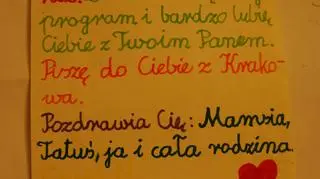 program i bardzo lubię
Ciebie z Twoim Panem.
Piszę do Ciebie z Krako-
wa.
Pozdrawia Cię: Mamusia,
Tatuś, ja i cała rodzina.